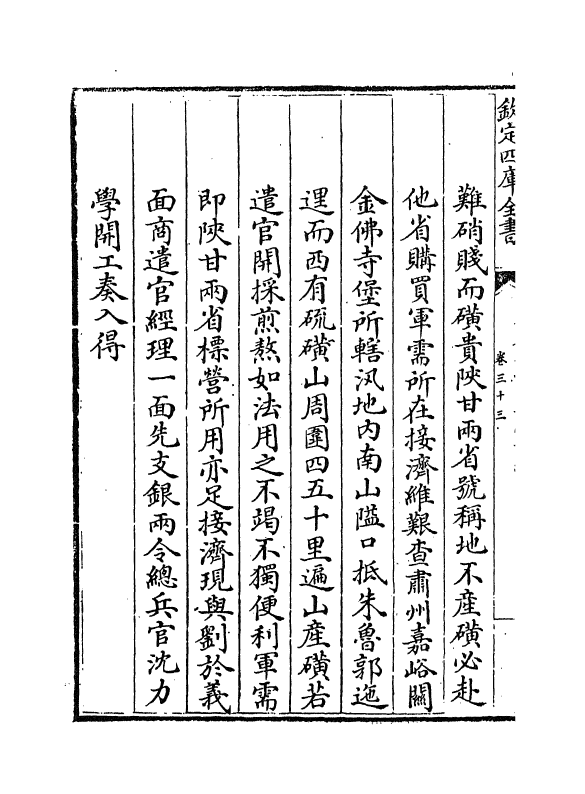 欽定四庫全書
卷三十三
難硝賤而磺貴陝甘兩省號稱地不産磺必赴
他省購買軍需所在接濟維艱查肅州嘉峪關
金佛寺堡所轄汛地內南山隘口抵朱魯郭迤
逕而西有硫磺山周圍四五十里遍山産磺若
遣官開採煎熬如法用之不竭不獨便利軍需
即陝甘兩省標營所用亦足接濟現與劉於義
面商遣官經理一面先支銀兩令總兵官沈力
學開工奏入得